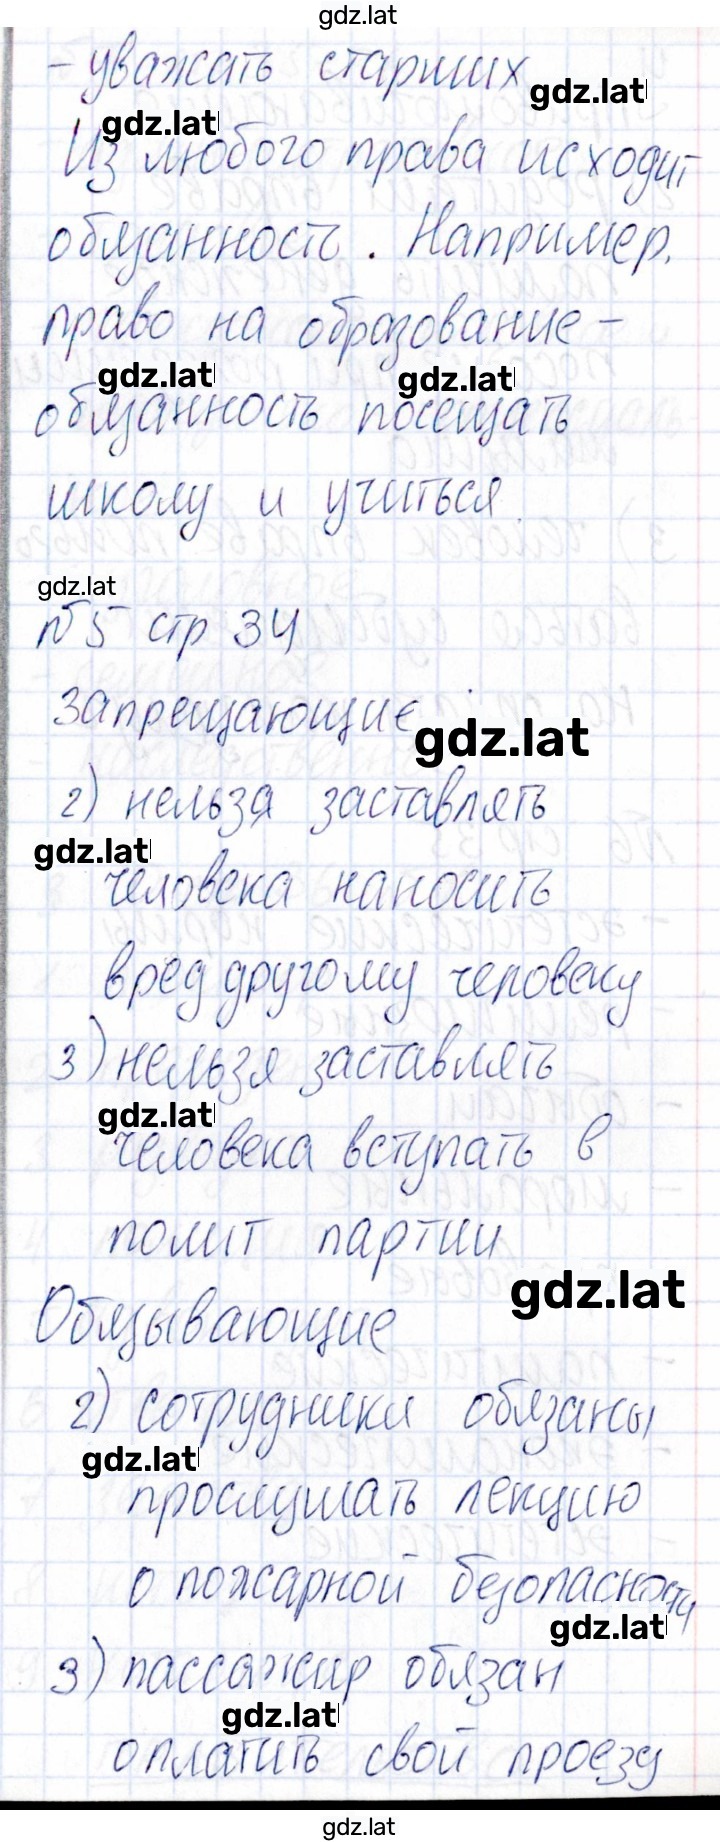 gdz.lat
- уважать старших
gdz.lat
gdz.lat
Из любого права исходит
обязанность. Например,
право на образование -
gdz.lat
gdz.lat
обязанность посещать
школу и учиться
gdz.lat
№5 стр 34
Запрещающие
gdz.lat
2) нельзя заставлять
gdz.lat
человека наносить
вред другому человеку
3) нельзя заставлять
gdz.lat
человека вступать в
полит партии
gdz.lat
Обязывающие
2) сотрудники обязаны
gdz.lat
прослушать лекцию
о пожарной безопасности
gdz.lat
3) пассажир обязан
gdz.lat
оплатить свой проезд
gdz.lat